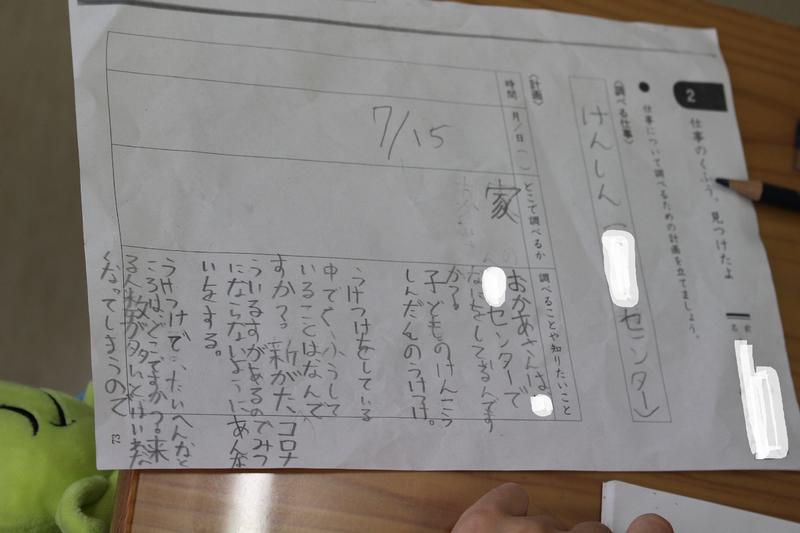 2
仕事のくふう、見つけたよ
名前
● 仕事について調べるための計画を立てましょう。
〈調べる仕事〉
けんしん（ センター）
〈計画〉
時間
月／日（ ）
どこで調べるか
調べることや知りたいこと
7/15
家
おかあさんは
センターで
なにをしてるんです
か？
子どものけんこう
しんだんのうけつけ。
うけつけをしている
中でくふうして
いることはなんで
すか？新がたコロナ
ういるすがあるのでみつ
にならないようにあんな
いをする。
うけつけでたいへんなと
ころはどこですか？来
る人数が多いと
なってしまうので
23